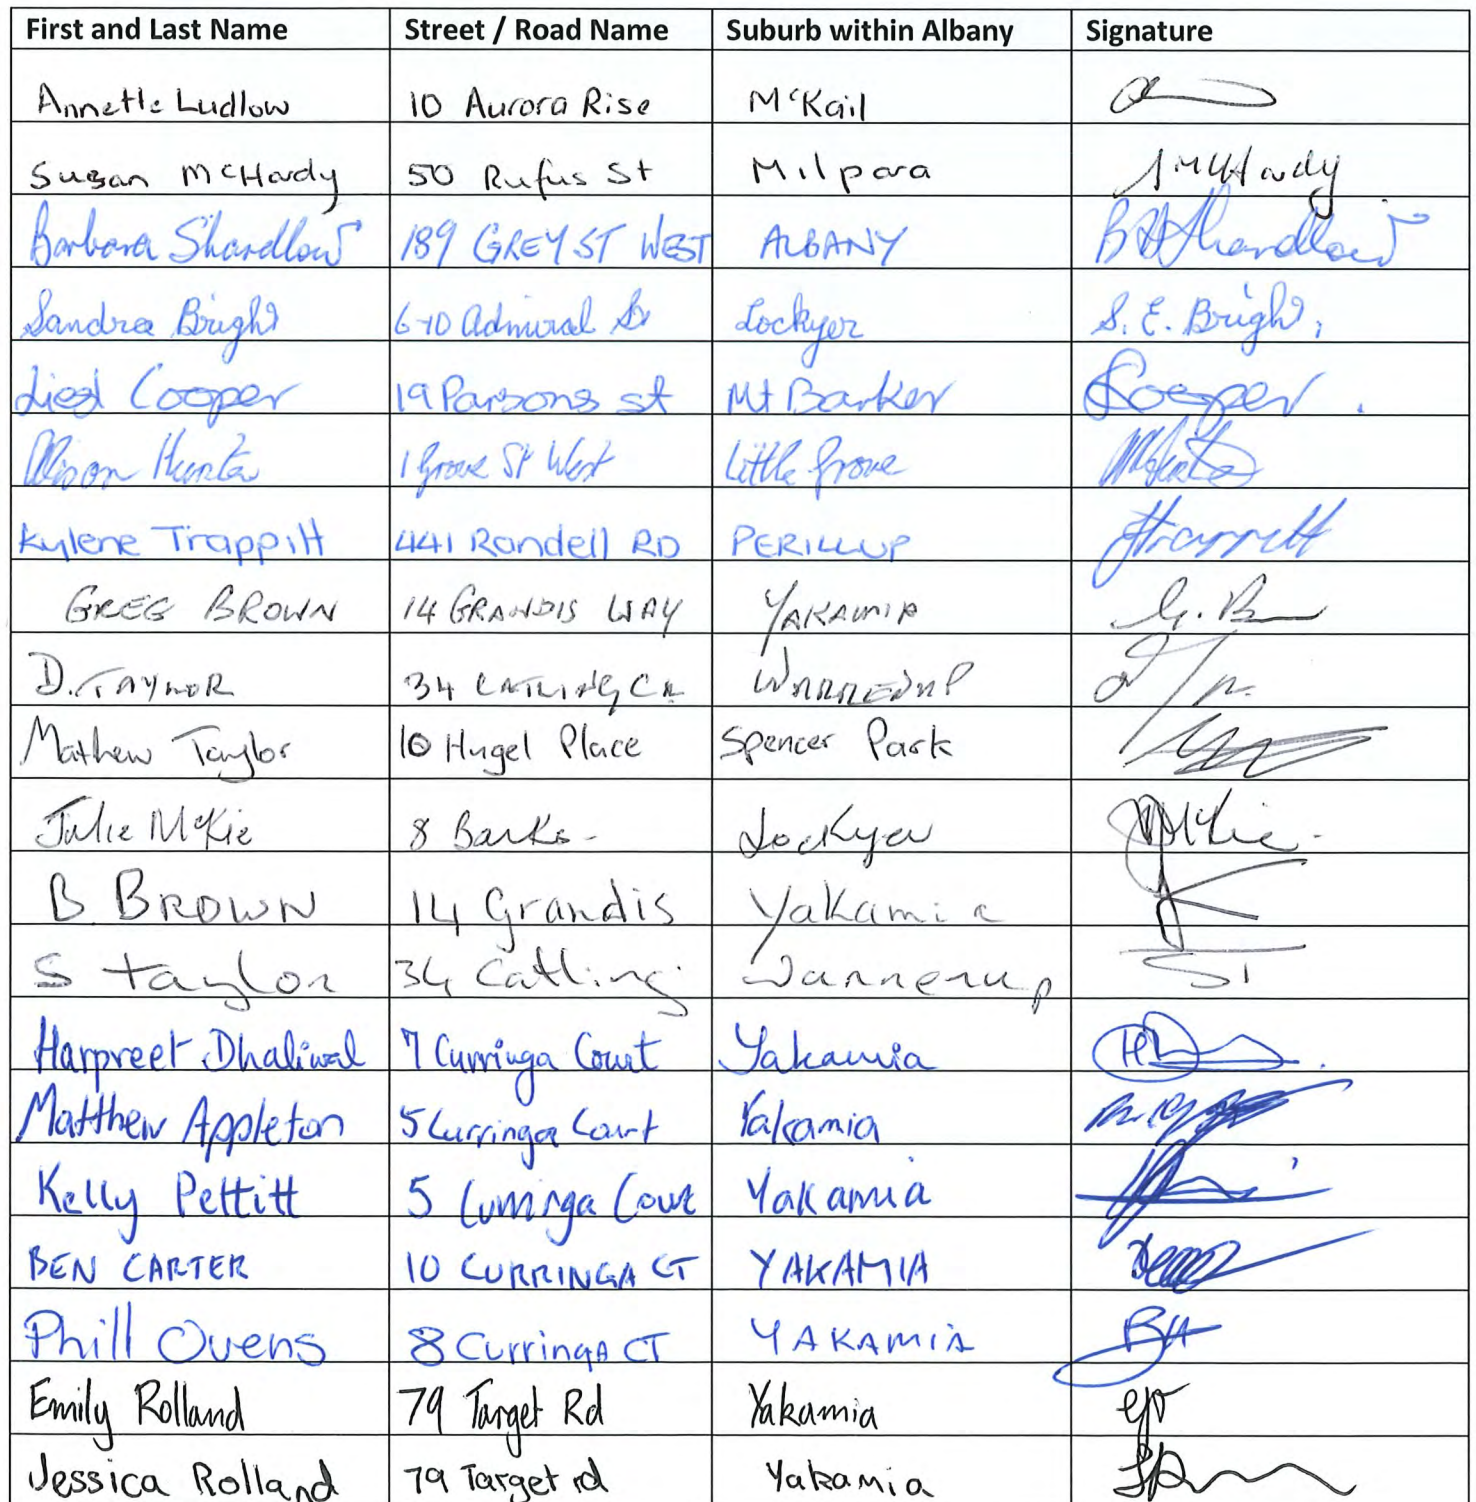 First and Last Name Street / Road Name Suburb within Albany Signature
Annette Ludlow 10 Aurora Rise McKail
Susan McHardy 50 Rufus St Milpara SMcHardy
Barbara Shardlow 189 GREY ST WEST ALBANY B Shardlow
Sandra Bright 6-10 Admiral St Lockyer S. E. Bright
Cooper 19 Parsons st Mt Barker Cooper
Alison Hunter 1 Grove St West Little Grove
Kylene Trappitt 441 Randell RD PERILLUP
GREG BROWN 14 GRANDIS WAY YAKAMIA G. B
D. TAYNOR 34 CATLING CR WARRENUP
Mathew Taylor 10 Hugel Place Spencer Park
Julie McKie 8 Barks- Lockyer McKie
B. BROWN 14 Grandis Yakamia
S taylor 34 Catling Warrenup ST
Harpreet Dhaliwal 7 Curringa Court Yakamia
Matthew Appleton 5 Curringa Court Yakamia
Kelly Pettitt 5 Curringa Court Yakamia
BEN CARTER 10 CURRINGA CT YAKAMIA
Phill Ovens 8 Curringa CT YAKAMIA
Emily Rolland 79 Target Rd Yakamia
Jessica Rolland 79 Target rd Yakamia